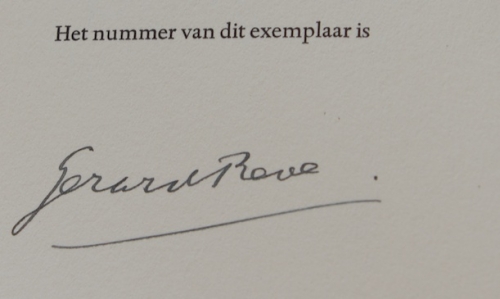 Het nummer van dit exemplaar is
Gerard Reve.